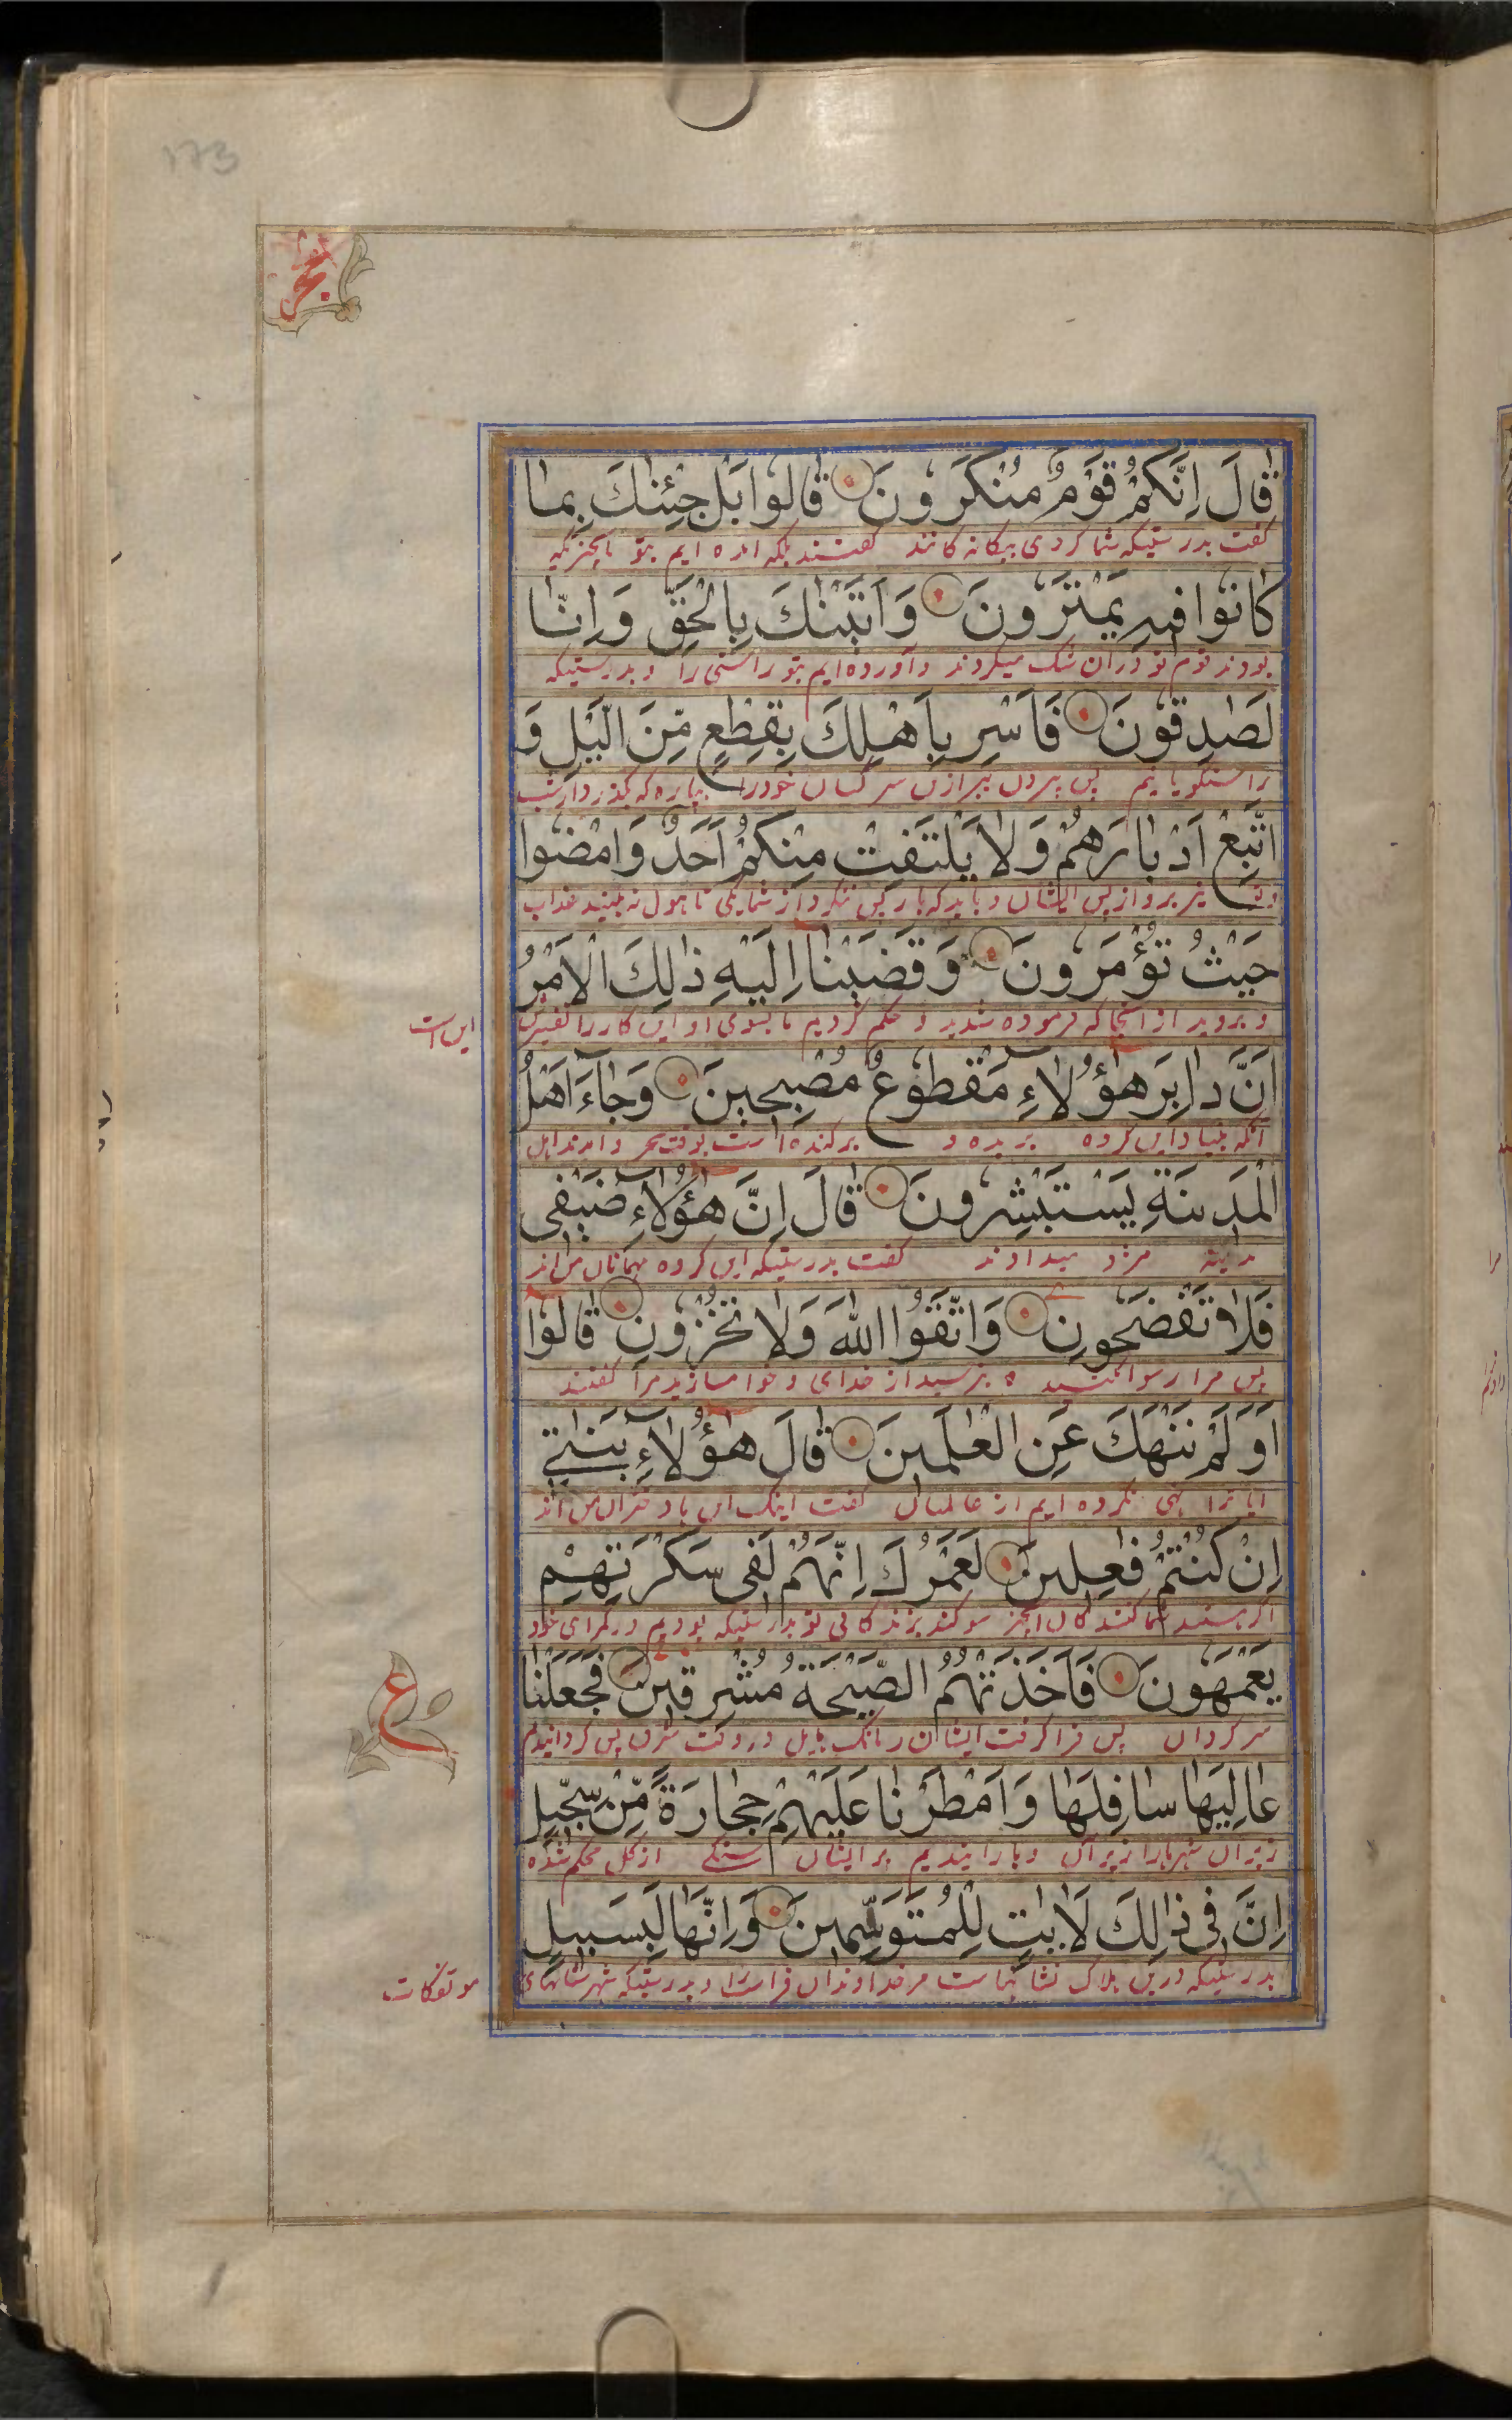 173
قَالَ اِنَّكُمْ قَوْمٌ مُنْكَرُونَ قَالُوا بَلْ جِئْنٰكَ بِمَا
گفت بدرستیکه شما گروهی بیکانه کانند گفتند بلکه امده ایم بتو بانچیزیکه
كَانُوا فِيهِ يَمْتَرُونَ وَاَتَيْنٰكَ بِالْحَقِّ وَاِنَّا
بودند قوم تو دران شک میکردند و آورده ایم بتو راستی را و بدرستیکه
لَصٰدِقُونَ فَاَسْرِ بِاَهْلِكَ بِقِطْعٍ مِّنَ الَّيْلِ وَ
راستگویانیم پس بیرون ببر ازین کسان خودرا بپاره که بگذرد از شب
اتَّبِعْ اَدْبَارَهُمْ وَلَا يَلْتَفِتْ مِنْكُمْ اَحَدٌ وَامْضُوا
برو از پس ایشان و باید که باز پس ننگرد از شما یکی تا هول نه بینند عذاب
حَيْثُ تُؤْمَرُونَ وَقَضَيْنَا اِلَيْهِ ذٰلِكَ الْاَمْرَ
و بروید از انجا که فرموده شدید و حکم کردیم ما بسوی او این کار را
این است
اَنَّ دَابِرَ هٰٓؤُلَاءِ مَقْطُوعٌ مُصْبِحِينَ وَجَآءَ اَهْلُ
انکه بنیاد این گروه بریده و برکنده است بوقت سحر و امدند اهل
الْمَدِينَةِ يَسْتَبْشِرُونَ قَالَ اِنَّ هٰٓؤُلَآءِ ضَيْفِى
مدینه مژد میدادند گفت بدرستیکه این گروه مهمانان من اند
فَلَا تَفْضَحُونِ وَاتَّقُوا اللّٰهَ وَلَا تُخْزُونِ قَالُوٓا
پس مرا رسوا مکنید بترسید از خدای و خوا مسازید مرا گفتند
اَوَلَمْ نَنْهَكَ عَنِ الْعٰلَمِينَ قَالَ هٰٓؤُلَآءِ بَنٰتِى
ایا ترا نهی نکرده ایم از عالمیان گفت اینک این دختران من اند
اِنْ كُنْتُمْ فٰعِلِينَ لَعَمْرُكَ اِنَّهُمْ لَفِى سَكْرَتِهِمْ
اگر هستید شما کنندکان سوکند بزندکانی تو بدرستیکه بودیم در کمراهی خود
يَعْمَهُونَ فَاَخَذَتْهُمُ الصَّيْحَةُ مُشْرِقِينَ فَجَعَلْنَا
سرکردان پس فرا گرفت ایشان را بانک هایل در وقت شرق پس کردانیدیم
ع
عَالِيَهَا سَافِلَهَا وَاَمْطَرْنَا عَلَيْهِمْ حِجَارَةً مِّنْ سِجِّيلٍ
زبر ان شهرها را زیر آن و بارانیدیم بر ایشان سنکی از کل محکم شده
اِنَّ فِى ذٰلِكَ لَاٰيٰتٍ لِلْمُتَوَسِّمِينَ وَاِنَّهَا لَبِسَبِيلٍ
بدرستیکه درین هلاک نشانهاست مر خداوندان فراست را و بدرستیکه شهرستانهای
موتفکات